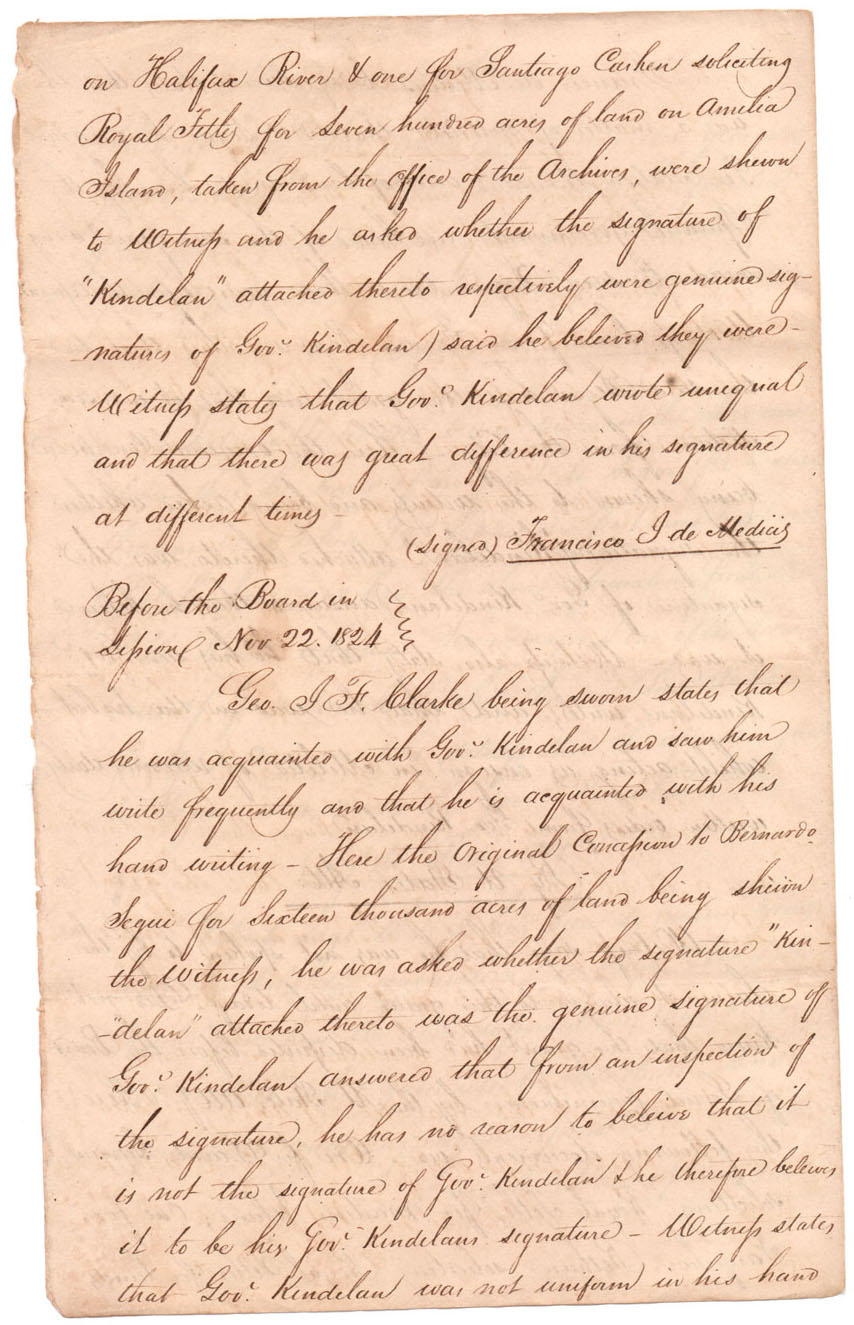 on Halifax River & one for Santiago Cashen soliciting
Royal Titles for Seven hundred acres of land on Amelia
Island, taken from the office of the Archives, were shewn
to Witness and he asked whether the signature of
"Kindelan" attached thereto respectively were genuine sig-
-natures of Govr. Kindelan) said he beleived they were-
Witness states that Govr. Kindelan wrote unequal
and that there was great difference in his signature
at different times-
(signed) Francisco J de Medicis
Before the Board in
Session Nov 22. 1824
Geo. J F. Clarke being sworn states that
he was acquainted with Govr. Kindelan and saw him
write frequently and that he is acquainted with his
hand writing - Here the Original Concession to Bernardo
Segui for Sixteen thousand acres of land being shewn
the Witness, he was asked whether the signature "Kin-
-"delan" attached thereto was the genuine signature of
Govr. Kindelan answered that from an inspection of
the signature, he has no reason to beleive that it
is not the signature of Govr. Kindelan & he therefore beleives
it to be his Govr. Kindelans signature - Witness states
that Govr. Kindelan was not uniform in his hand